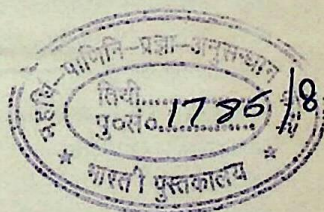 महर्षि-पाणिनि-प्रज्ञा-अनुसन्धान
तिथी..............
पु०सं०.1786/8
* भारती पुस्तकालय *